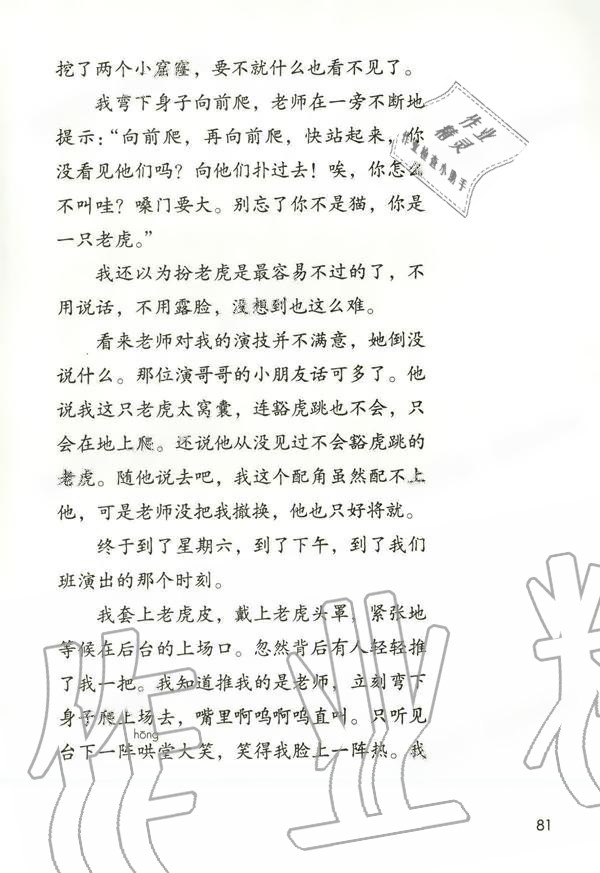 挖了两个小窟窿，要不就什么也看不见了。
我弯下身子向前爬，老师在一旁不断地
提示：“向前爬，再向前爬，快站起来，你
没看见他们吗？向他们扑过去！唉，你怎么
不叫哇？嗓门要大。别忘了你不是猫，你是
一只老虎。”
我还以为扮老虎是最容易不过的了，不
用说话，不用露脸，没想到也这么难。
看来老师对我的演技并不满意，她倒没
说什么。那位演哥哥的小朋友话可多了。他
说我这只老虎太窝囊，连豁虎跳也不会，只
会在地上爬。还说他从没见过不会豁虎跳的
老虎。随他说去吧，我这个配角虽然配不上
他，可是老师没把我撤换，他也只好将就。
终于到了星期六，到了下午，到了我们
班演出的那个时刻。
我套上老虎皮，戴上老虎头罩，紧张地
等候在后台的上场口。忽然背后有人轻轻推
了我一把。我知道推我的是老师，立刻弯下
身子爬上场去，嘴里啊呜啊呜直叫。只听见
hōng
台下一阵哄堂大笑，笑得我脸上一阵热。我
81
作业
精灵
作业检查小助手
作业精